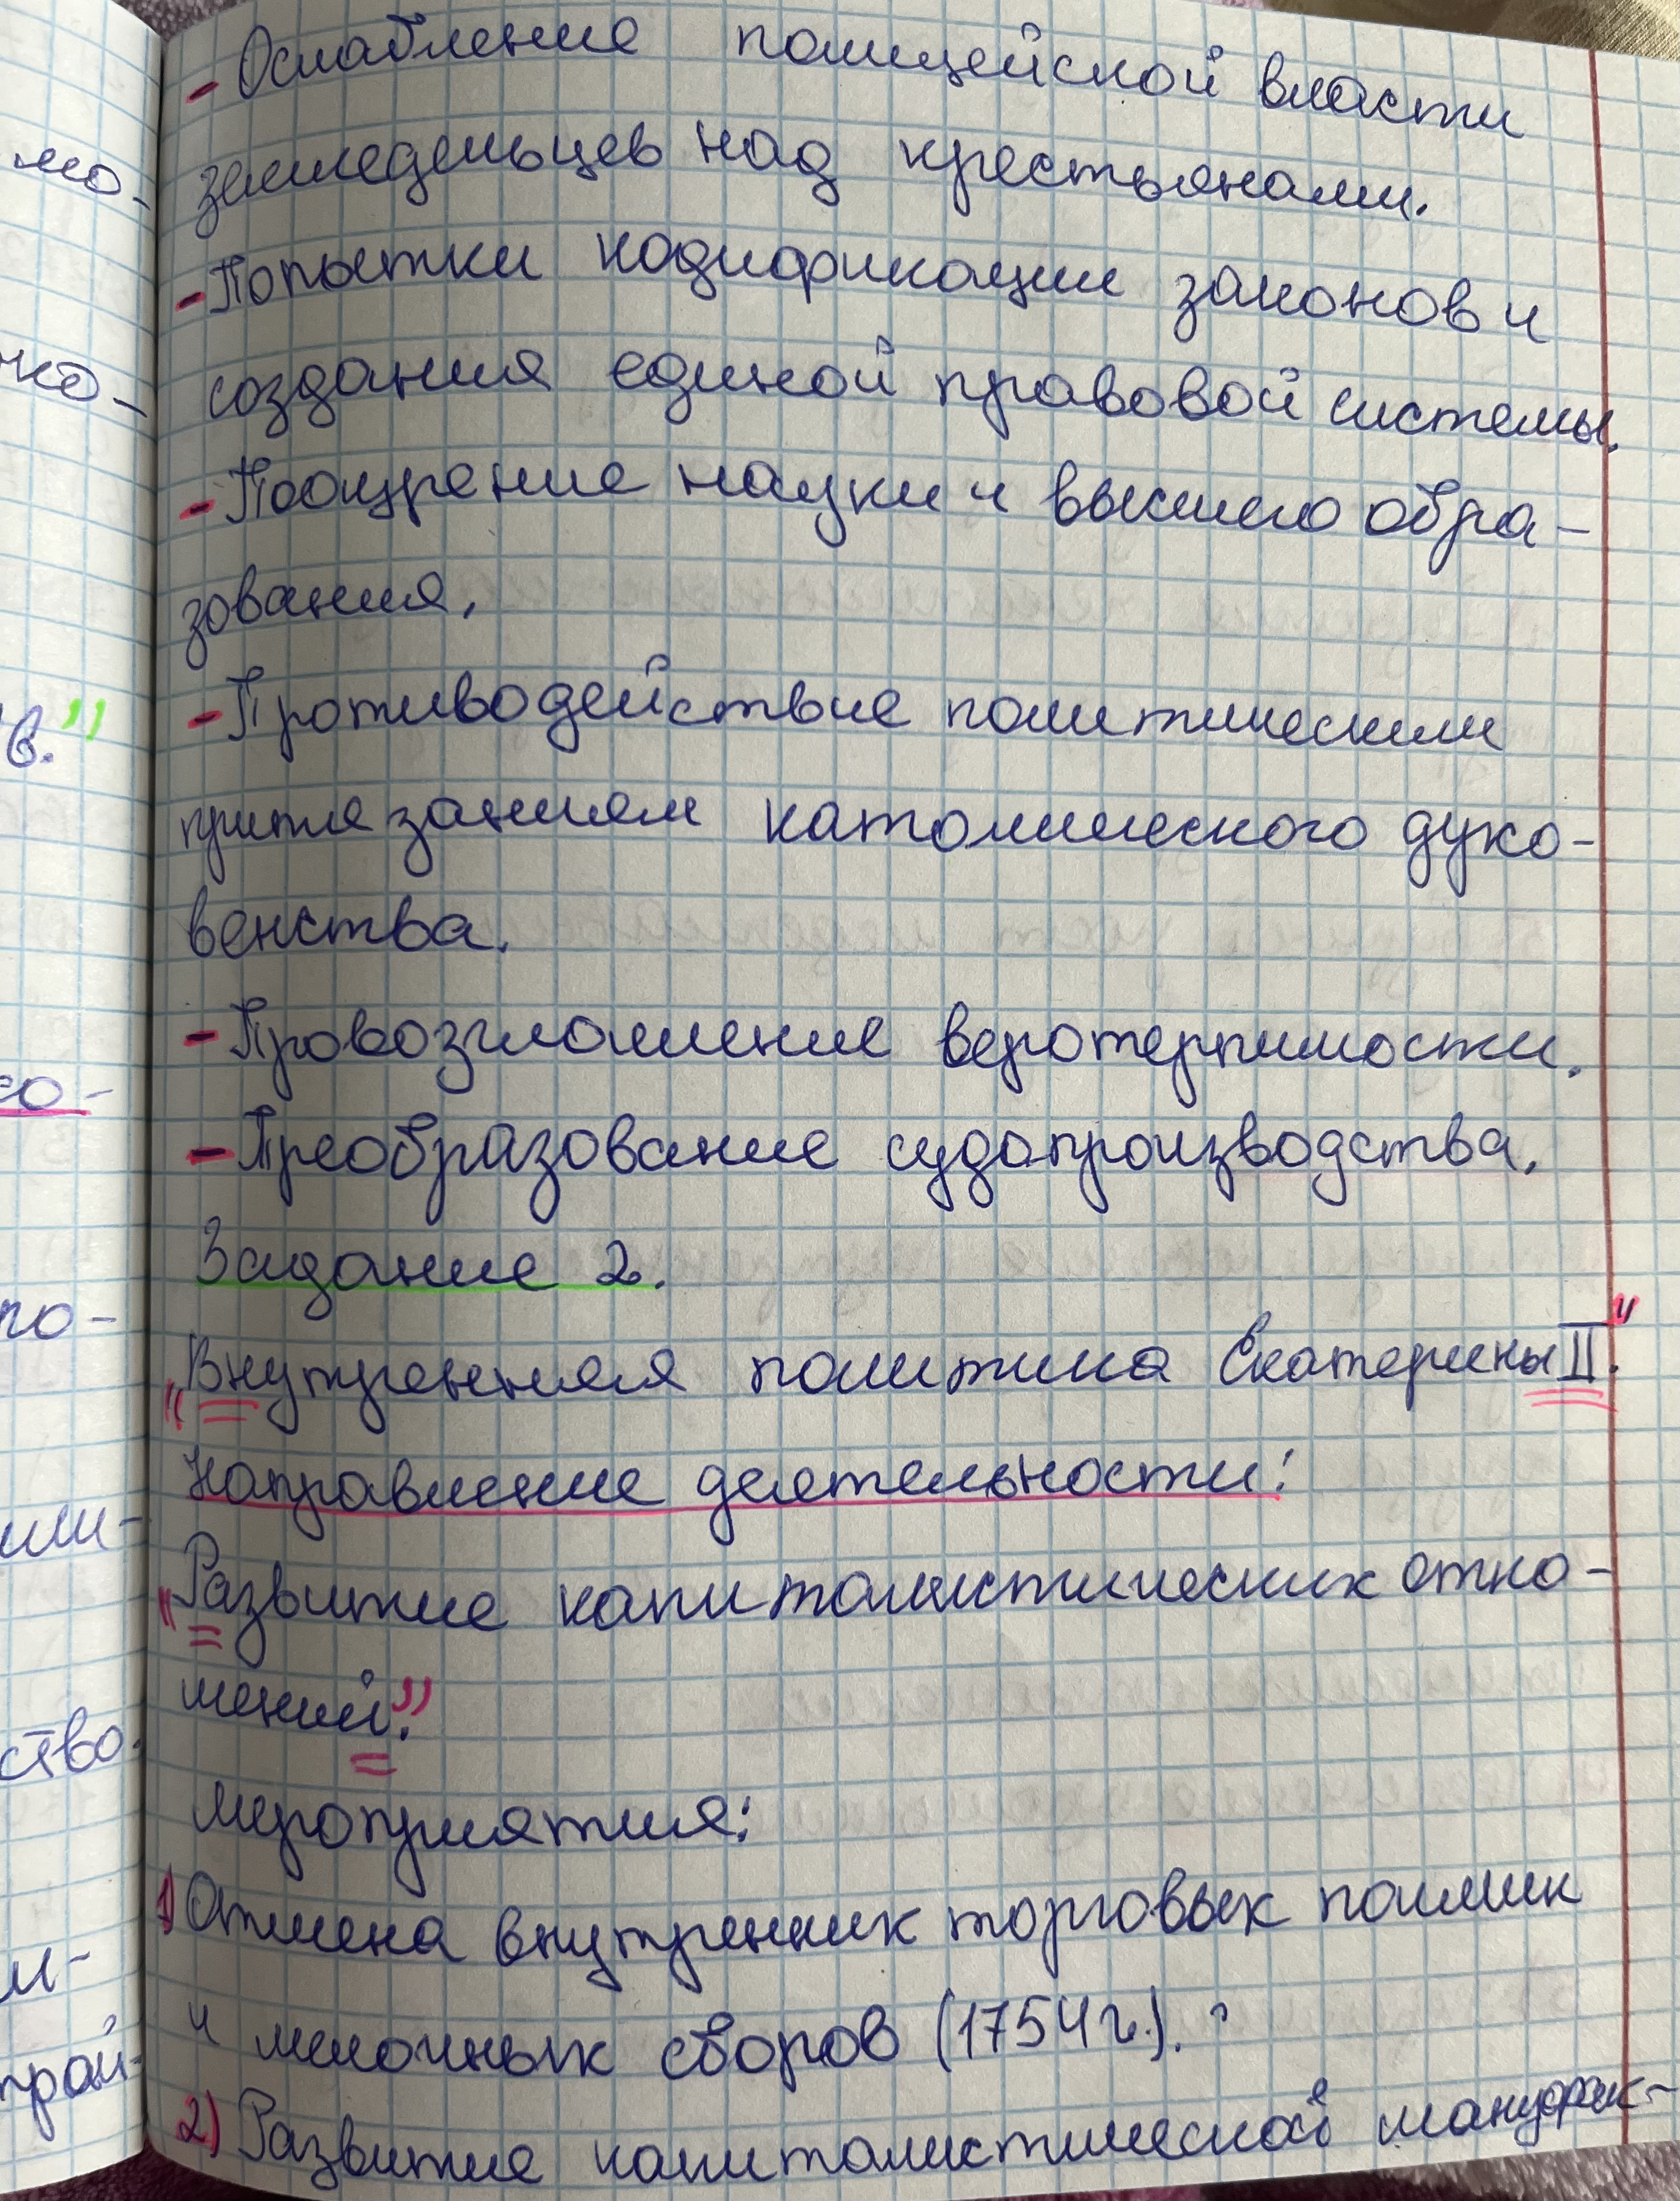 - Ослабление полицейской власти
земледельцев над крестьянами.
- Попытки кодификации законов и
создания единой правовой системы.
- Поощрение науки и высшего обра-
зования.
- Противодействие политическим
притязаниям католического духо-
венства.
- Провозглашение веротерпимости.
- Преобразование судопроизводства.
Задание 2.
"Внутренняя политика Екатерины II."
Направление деятельности:
"Развитие капиталистических отно-
шений."
Мероприятия:
1) Отмена внутренних торговых пошлин
и мелочных сборов (1754г.).
2) Развитие капиталистической мануфак-
мо-
ко-
в."
со-
по-
или-
ство.
и-
трой-